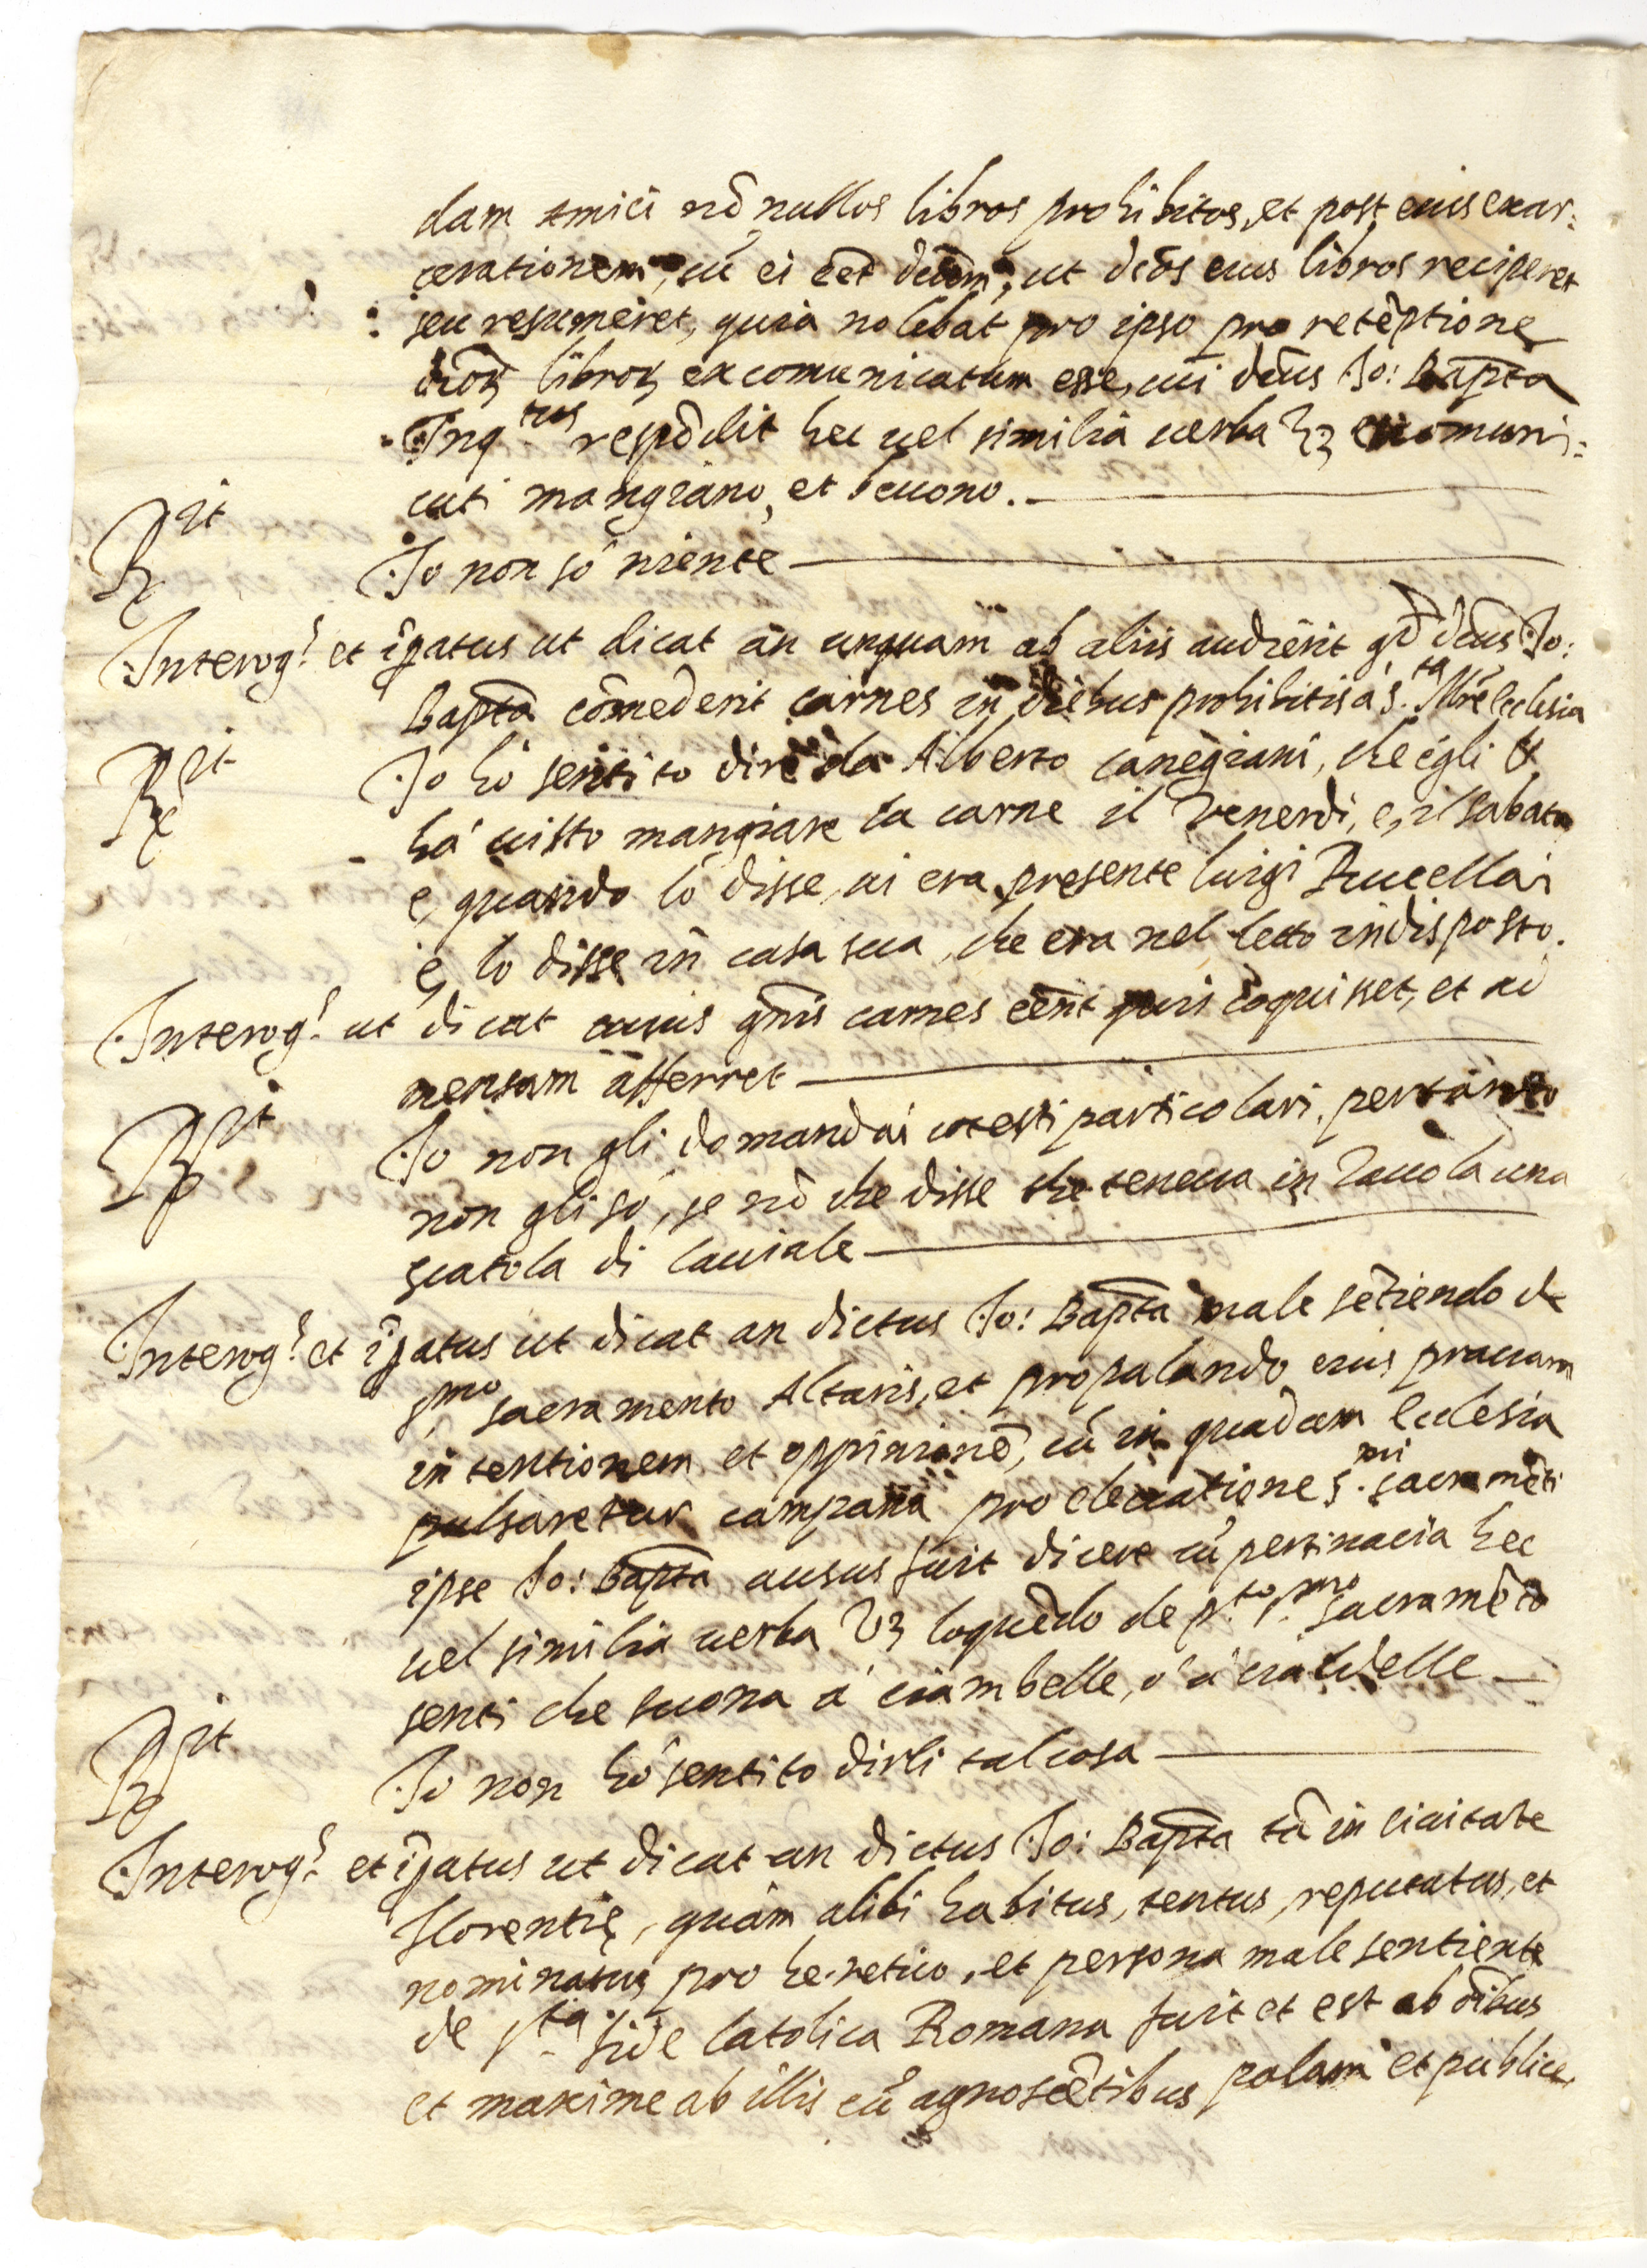 dam Amici nō nullos libros prohibitos, et post eius excar:
cerationem, cū ei eēt dictm̄, ut dc̄os eius libros reciperet
seu resumeret, quia nolebat pro ipso pro retēptione
dc̄oꝝ libroꝝ excomunicatum esse, cui dc̄us Jo: Bap̄ta
Inq.tus respōdit hec uel similia uerba Vz excomuni:
cati mangiano, et beuono.
R.it Jo non so niente
Interog.s et īp̄atus ut dicat an unquam ab aliis audierit qd̄ dc̄us Jo:
Bap̄ta cōmederit carnes in diebus prohibitis a S.ta Mr̄e Ecclesia
R.it Jo hò sentito dire da Alberto canegiani, che egli
hà uisto mangiare la carne il Venerdi, e, il sabato
e, quando lo disse, ui era presente luigi Rucellai
e, lo disse in casa sua, che era nel letto indisposto.
Interog.s ut dicat cuius gn̄is carnes eēnt quis coquisset, et ad
mensam afferret
R.it Jo non gli domandai cotesti particolari, pertanto
non gli so, se nō che disse che teneua in Tauola una
scatola di Cauiale
Interog.s et īp̄atus ut dicat an dictus Jo: Bap̄ta male sētiendo de
S.mo sacramento Altaris, et propalando eius prauam
intentionem et oppinionē, cū in quadam Ecclesia
pulsaretur campana pro eleuatione S.mi sacramēti
ipse Jo: Bap̄ta ausus fuit dicere cū pertinacia hec
uel similia uerba Vz loquēdo de p.to S.mo sacramēto
senti che suona à ciambelle, ò à cialdelle
R.it Jo non hò sentito dirli tal cosa
Interog.s et īp̄atus ut dicat an dictus Jo: Bap̄ta tā in ciuitate
Florentię, quam alibi habitus, tentus, reputatus, et
nominatus pro heretico, et persona male sentiente
de S.ta fide Catolica Romana fuit et est ab oībus
et maxime ab illis eū agnoscētibus palam et publice